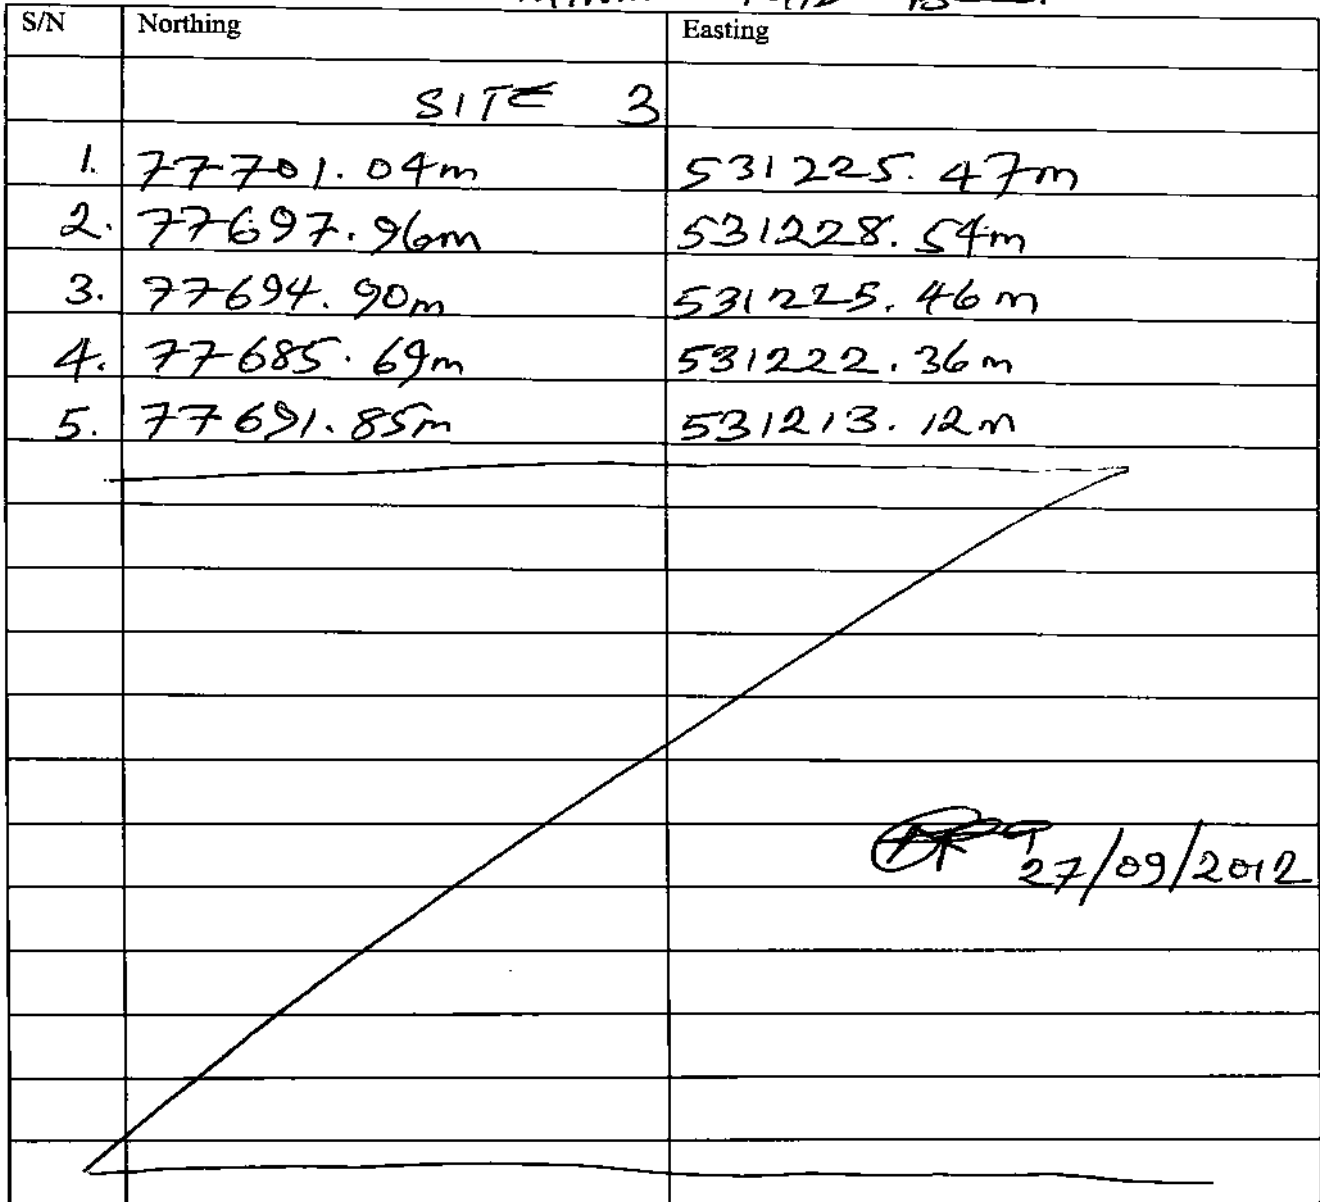 S/N Northing Easting
SITE 3
1. 77701.04m 531225.47m
2. 77697.96m 531228.54m
3. 77694.90m 531225.46m
4. 77685.69m 531222.36m
5. 77691.85m 531213.12m
27/09/2012